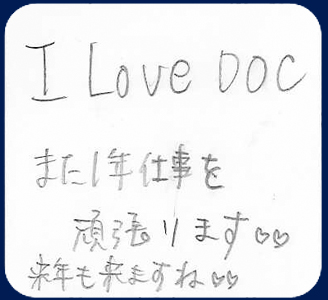 I Love DOC
また1年仕事を
頑張ります♡♡
来年も来ますね♡♡